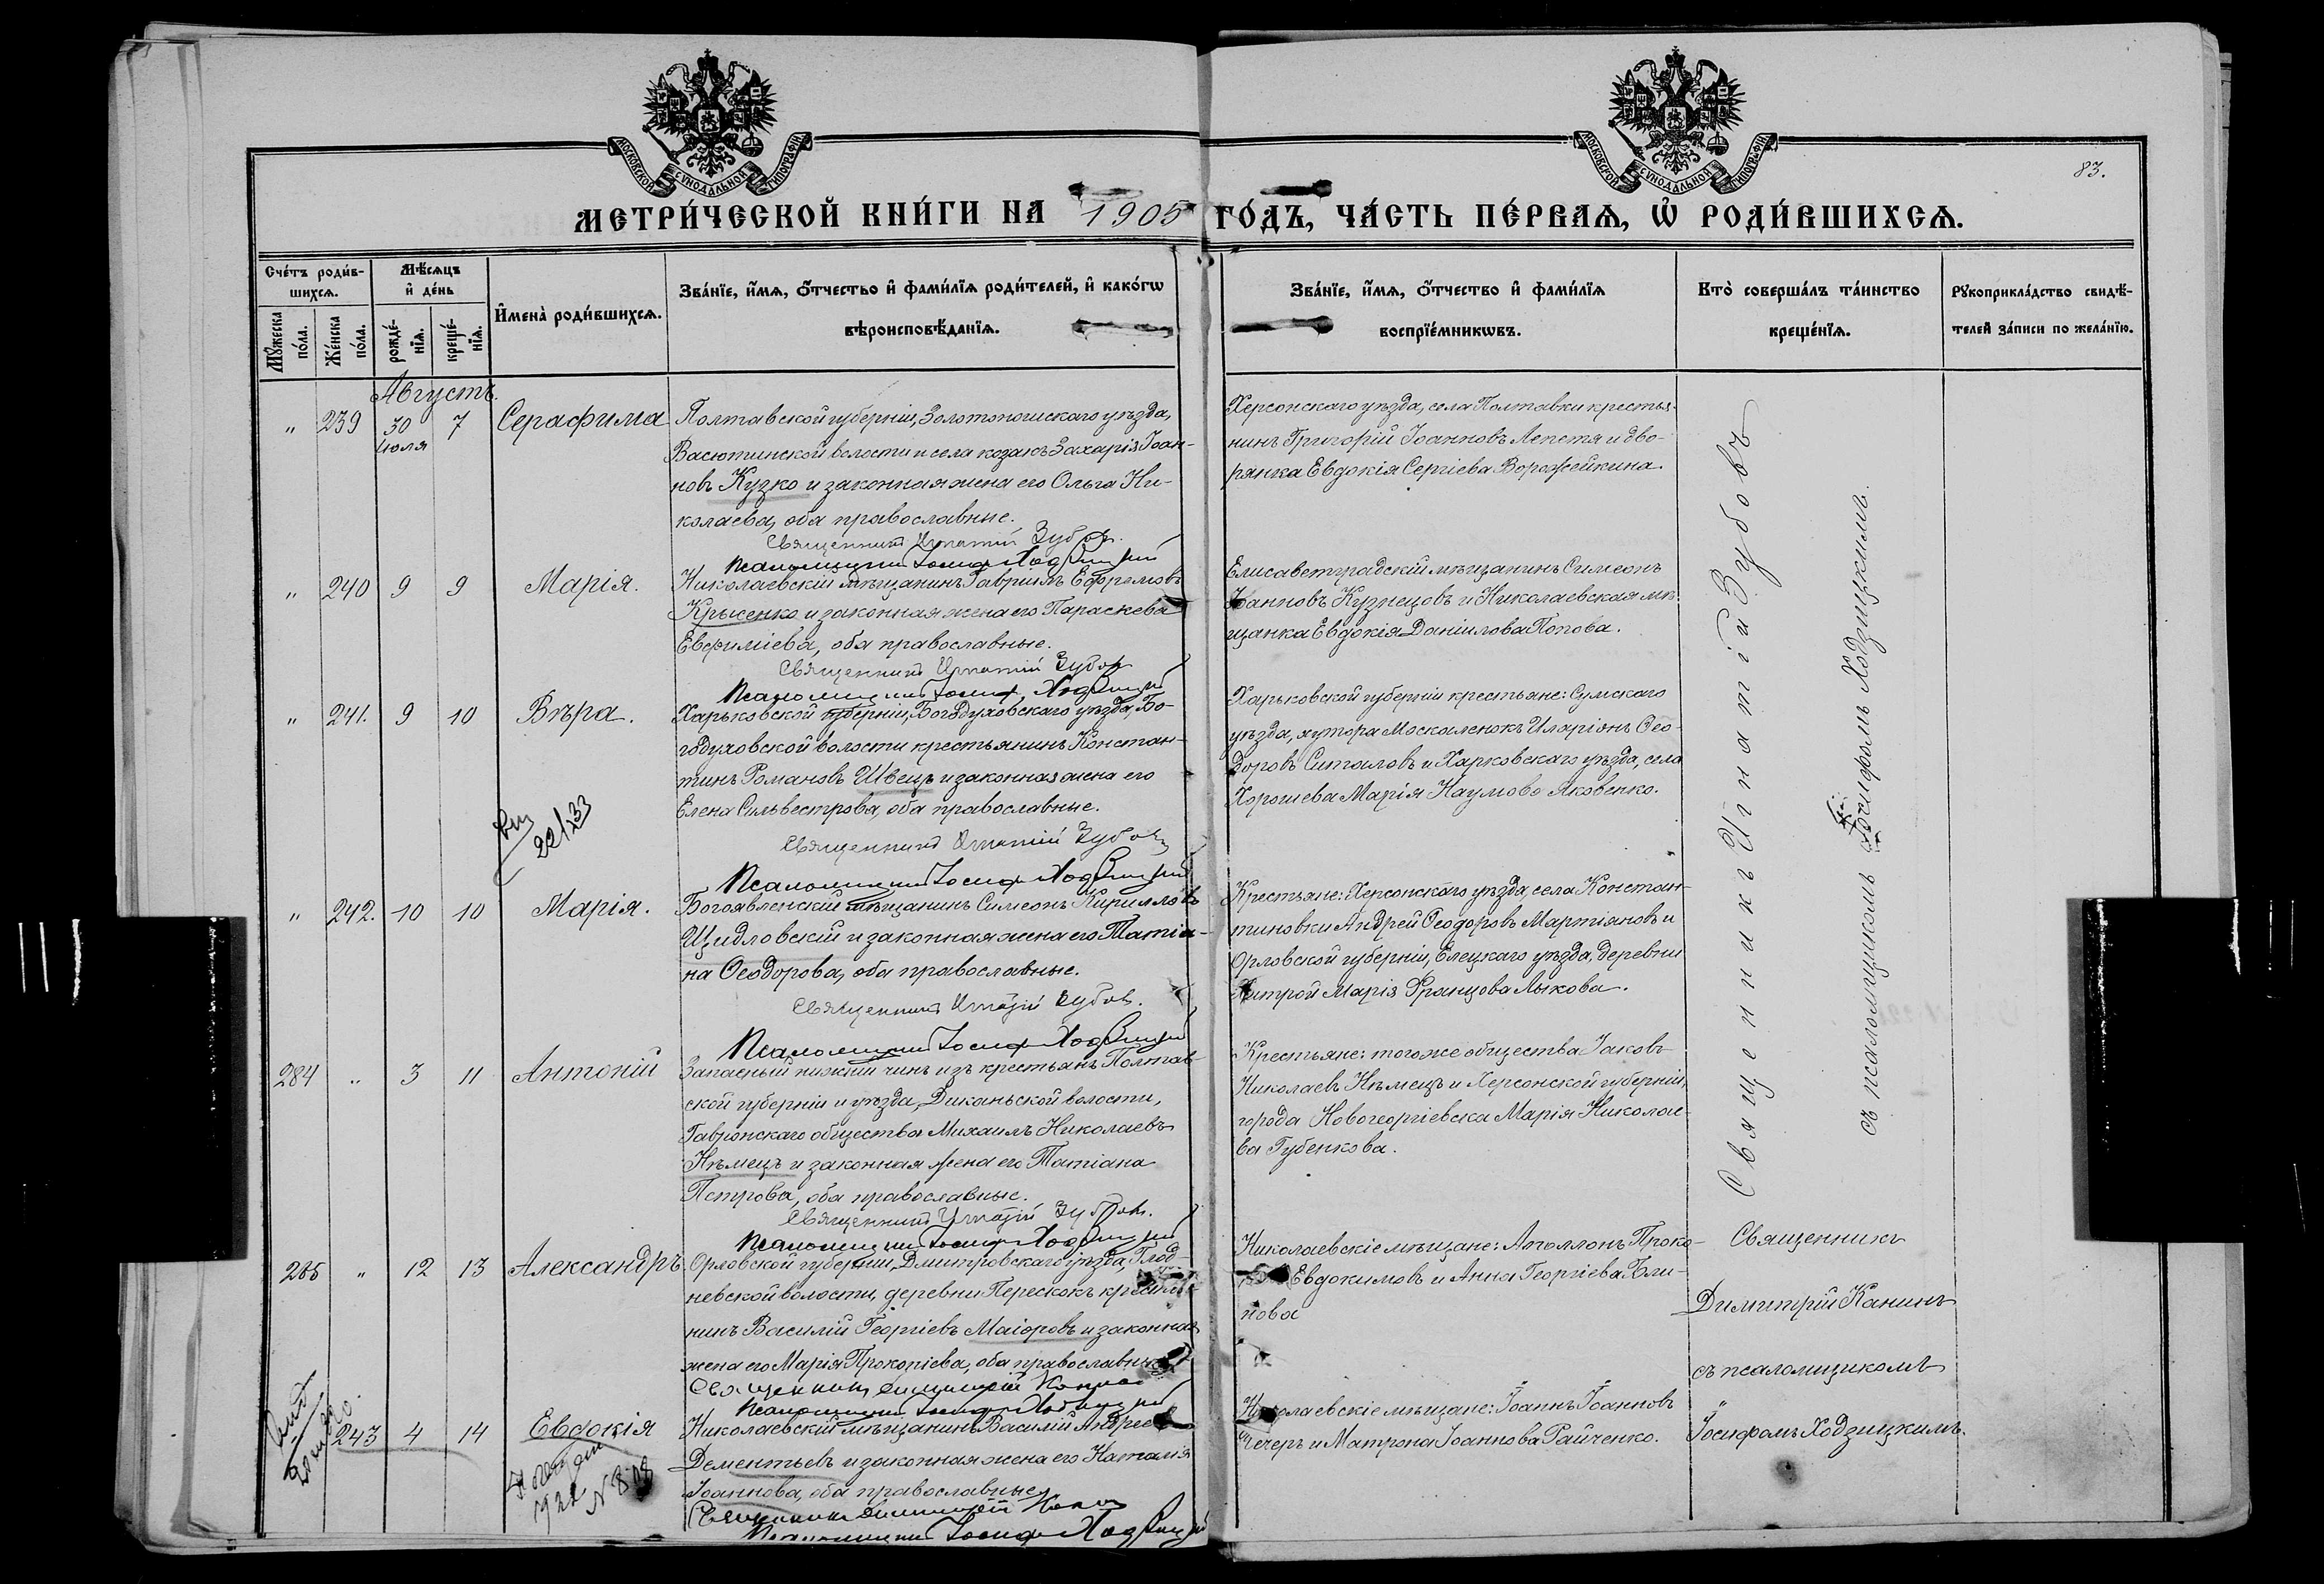 МОСКОВСКОЙ СѴНОДАЛЬНОЙ ТИПОГРАФІИ
МОСКОВСКОЙ СѴНОДАЛЬНОЙ ТИПОГРАФІИ
83.
МЕТРИ́ЧЕСКОЙ КНИ́ГИ НА 1905 ГО́ДЪ, ЧА́СТЬ ПЕ́РВАѦ, Ѡ҆ РОДИ́ВШИХСѦ.
Сче́тъ роди́в-
шихсѧ.
Мꙋ́жеска
по́ла.
Же́нска
по́ла.
Мѣ́сѧцъ
и҆ де́нь
рожде́-
нїѧ.
креще́-
нїѧ.
И҆мена̀ роди́вшихсѧ.
Зва́нїе, и҆́мѧ, ѻ҆́тчество и҆ фами́лїѧ роди́телей, и҆ како́гѡ
вѣроисповѣ́данїѧ.
Зва́нїе, и҆́мѧ, ѻ҆́тчество и҆ фами́лїѧ
воспрїе́мникѡвъ.
Кто̀ соверша́лъ та́инство
креще́нїѧ.
Рꙋкоприкла́дство свидѣ́-
телей за́писи по жела́нїю.
Августъ.
" 239 30 7 Серафима
Іюля
Полтавской губерніи, Золотоношскаго уѣзда,
Васютинской волости и села козакъ Захарія Іоан-
новъ Кузко и законная жена его Ольга Ни-
колаева, оба православные.
Священникъ Игнатій Зубовъ.
Псаломщикъ Іосифъ Ходзицкій
Херсонскаго уѣзда, села Полтавки крестья-
нинъ Григорій Іоанновъ Лепетя и дво-
рянка Евдокія Сергіева Ворожейкина.
" 240 9 9 Марія.
Николаевскій мѣщанинъ Гавріилъ Ефремовъ
Крысенко и законная жена его Параскева
Евфиміева, оба православные.
Священникъ Игнатій Зубовъ
Псаломщикъ Іосифъ Ходзицкій
Елисаветградскій мѣщанинъ Симеонъ
Іоанновъ Кузнецовъ и Николаевская мѣ-
щанка Евдокія Даніилова Попова.
" 241. 9 10 Вѣра.
Харьковской губерніи, Богодуховскаго уѣзда, Бо-
годуховской волости крестьянинъ Констан-
тинъ Романовъ Швецъ и законная жена его
Елена Сильвестрова, оба православные.
Священникъ Игнатій Зубовъ
Псаломщикъ Іосифъ Ходзицкій
Харьковской губерніи крестьяне: Сумскаго
уѣзда, хутора Москаленокъ Иларіонъ Ѳео-
доровъ Ситоиловъ и Харковскаго уѣзда, села
Хорошева Марія Наумова Яковенко.
22/23
" 242. 10 10 Марія.
Богоявленскій мѣщанинъ Симеонъ Кирилловъ
Щидловскій и законная жена его Татіа-
на Ѳеодорова, оба православные.
Священникъ Игнатій Зубовъ.
Псаломщикъ Іосифъ Ходзицкій
Крестьяне: Херсонскаго уѣзда, села Констан-
тиновки Андрей Ѳеодоровъ Мартіяновъ и
Орловской губерніи, Елецкаго уѣзда, деревни
Марія Францова Лыкова.
284 " 3 11 Антоній
Запасный нижній чинъ изъ крестьянъ Полтав-
ской губерніи и уѣзда, Диканьской волости,
Гавронскаго общества Михаилъ Николаевъ
Нѣмецъ и законная жена его Татіана
Петрова, оба православные.
Священникъ Игнатій Зубовъ.
Псаломщикъ Іосифъ Ходзицкій
Крестьяне: того же общества Іаковъ
Николаевъ Нѣмецъ и Херсонской губерніи,
города Новогеоргіевска Марія Николае-
ва Губенкова.
Священникъ Игнатій Зубовъ
съ псаломщикомъ Іосифомъ Ходзицкимъ.
285 " 12 13 Александръ
Орловской губерніи, Дмитровскаго уѣзда, Глод-
невской волости, деревни Перескокъ крестья-
нинъ Василій Георгіевъ Маіоровъ и законная
жена его Марія Прокопіева, оба православные
Священникъ Димитрій Канинъ
Псаломщикъ Іосифъ Ходзицкій
Николаевскіе мѣщане: Аполлонъ Проко-
Евдокимовъ и Анна Георгіева Бли-
нова
Священникъ
Димитрій Канинъ
съ псаломщикомъ
Іосифомъ Ходзицкимъ.
243 4 14 Евдокія
1922 N 808
Николаевскій мѣщанинъ Василій Андреевъ
Дементьевъ и законная жена его Наталія
Іоаннова, оба православные.
Священникъ Димитрій Канинъ
Псаломщикъ Іосифъ Ходзицкій
Николаевскіе мѣщане: Іоаннъ Іоанновъ
Чечеръ и Матрона Іоаннова Райченко.